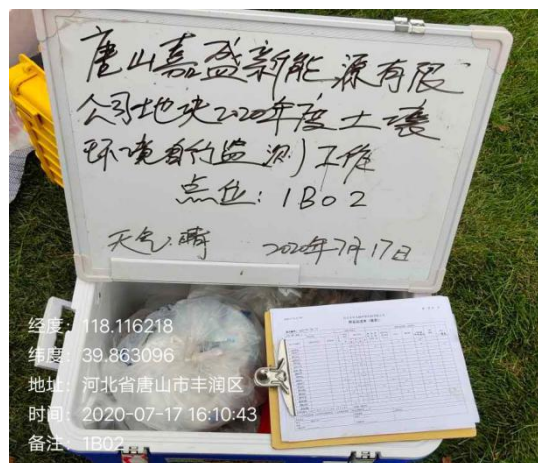 唐山嘉盛新能源有限
公司地块2020年度土壤
环境自行监测工作
点位：1B02
天气：晴
2020年7月17日
经度：118.116218
纬度：39.863096
地址：河北省唐山市丰润区
时间：2020-07-17 16:10:43
备注：1B02